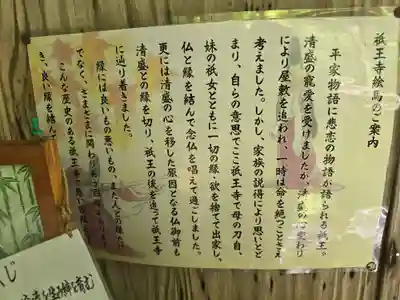 祇王寺絵馬のご案内
平家物語に悲恋の物語が語られる祇王。
清盛の寵愛を受けましたが、清盛の心変わり
により屋敷を追われ、一時は命を絶つことさえ
考えました。しかし、家族の説得により思いとど
まり、自らの意思でここ祇王寺で母の刀自、
妹の祇女とともに一切の縁・欲を捨てて出家し、
仏と縁を結んで念仏を唱えて過ごしました。
更には清盛の心を移した原因となる仏御前も
清盛との縁を切り、祇王の後を追って祇王寺
に辿り着きました。
縁には良いもの悪いもの、また人との縁だけ
でなく、さまざまに関わり
こんな歴史のある祇王寺で悪い縁
き、良い縁を結んで
くじ